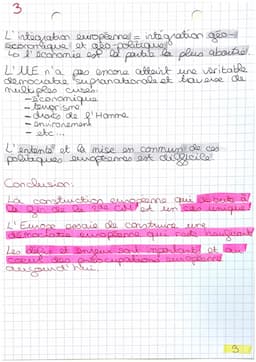 3
L'intégration européenne = intégration géo-
économique et géo-politique
↳ l'économie est la partie la plus aboutie.
L'UE n'a pas encore atteint une véritable
démocratie supranationale et traverse de
multiples crises.
- économique
- terrorisme
- droits de l'Homme
- environnement
- etc...
L'entente et la mise en commun de ces
politiques européennes est difficile.
Conclusion:
La construction européenne qui
la fin de la 2nde GM est un cas unique!
L'Europe essaie de construire une
démocratie européenne qui
Les défis et enjeux sont important et au
coeur des préocupations européenne
aujourd'hui.
3